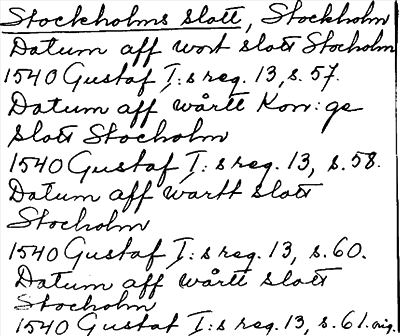 Stockholms slott, Stockholm
Datum aff wort slott Stocholm
1540 Gustaf I:s reg. 13, s. 57.
Datum aff wårtt Kon:ge
slott Stocholm
1540 Gustaf I:s reg. 13, s. 58.
Datum aff wartt slott
Stocholm
1540 Gustaf I:s reg. 13, s. 60.
Datum aff wårtt slott
Stocholm
1540 Gustaf I:s reg. 13, s. 61. orig.